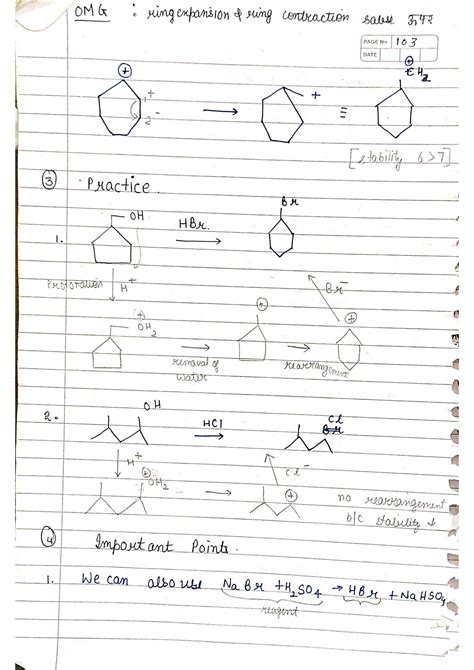 OMG : ring expansion & ring contraction sabse ऊपर
PAGE No 103
⊕
⊕
CH2
+
+
2 -
≡
[stability 6>7]
③ Practice.
Br
OH
HBr.
1.
Protonation
H+
Br-
⊕
OH2
⊕
⊕
removal of
water
rearrangement
2.
OH
HCl
Cl
H+
⊕
OH2
Cl-
⊕
no rearrangement
b/c stability ↓
④ Important Points.
1. We can also use NaBr + H2SO4 → HBr + NaHSO4
reagent